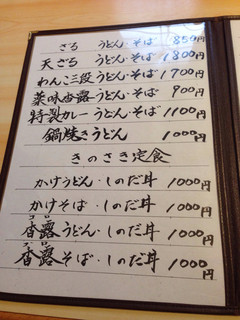 ざる うどん・そば 850円
天ざる うどん・そば 1800円
わんこ三段 うどん・そば 1700円
薬味香露 うどん・そば 900円
特製カレー うどん・そば 1100円
鍋焼きうどん 1000円
きのさき定食
かけうどん・しのだ丼 1000円
かけそば・しのだ丼 1000円
コロ
香露うどん・しのだ丼 1000円
コロ
香露そば・しのだ丼 1000円